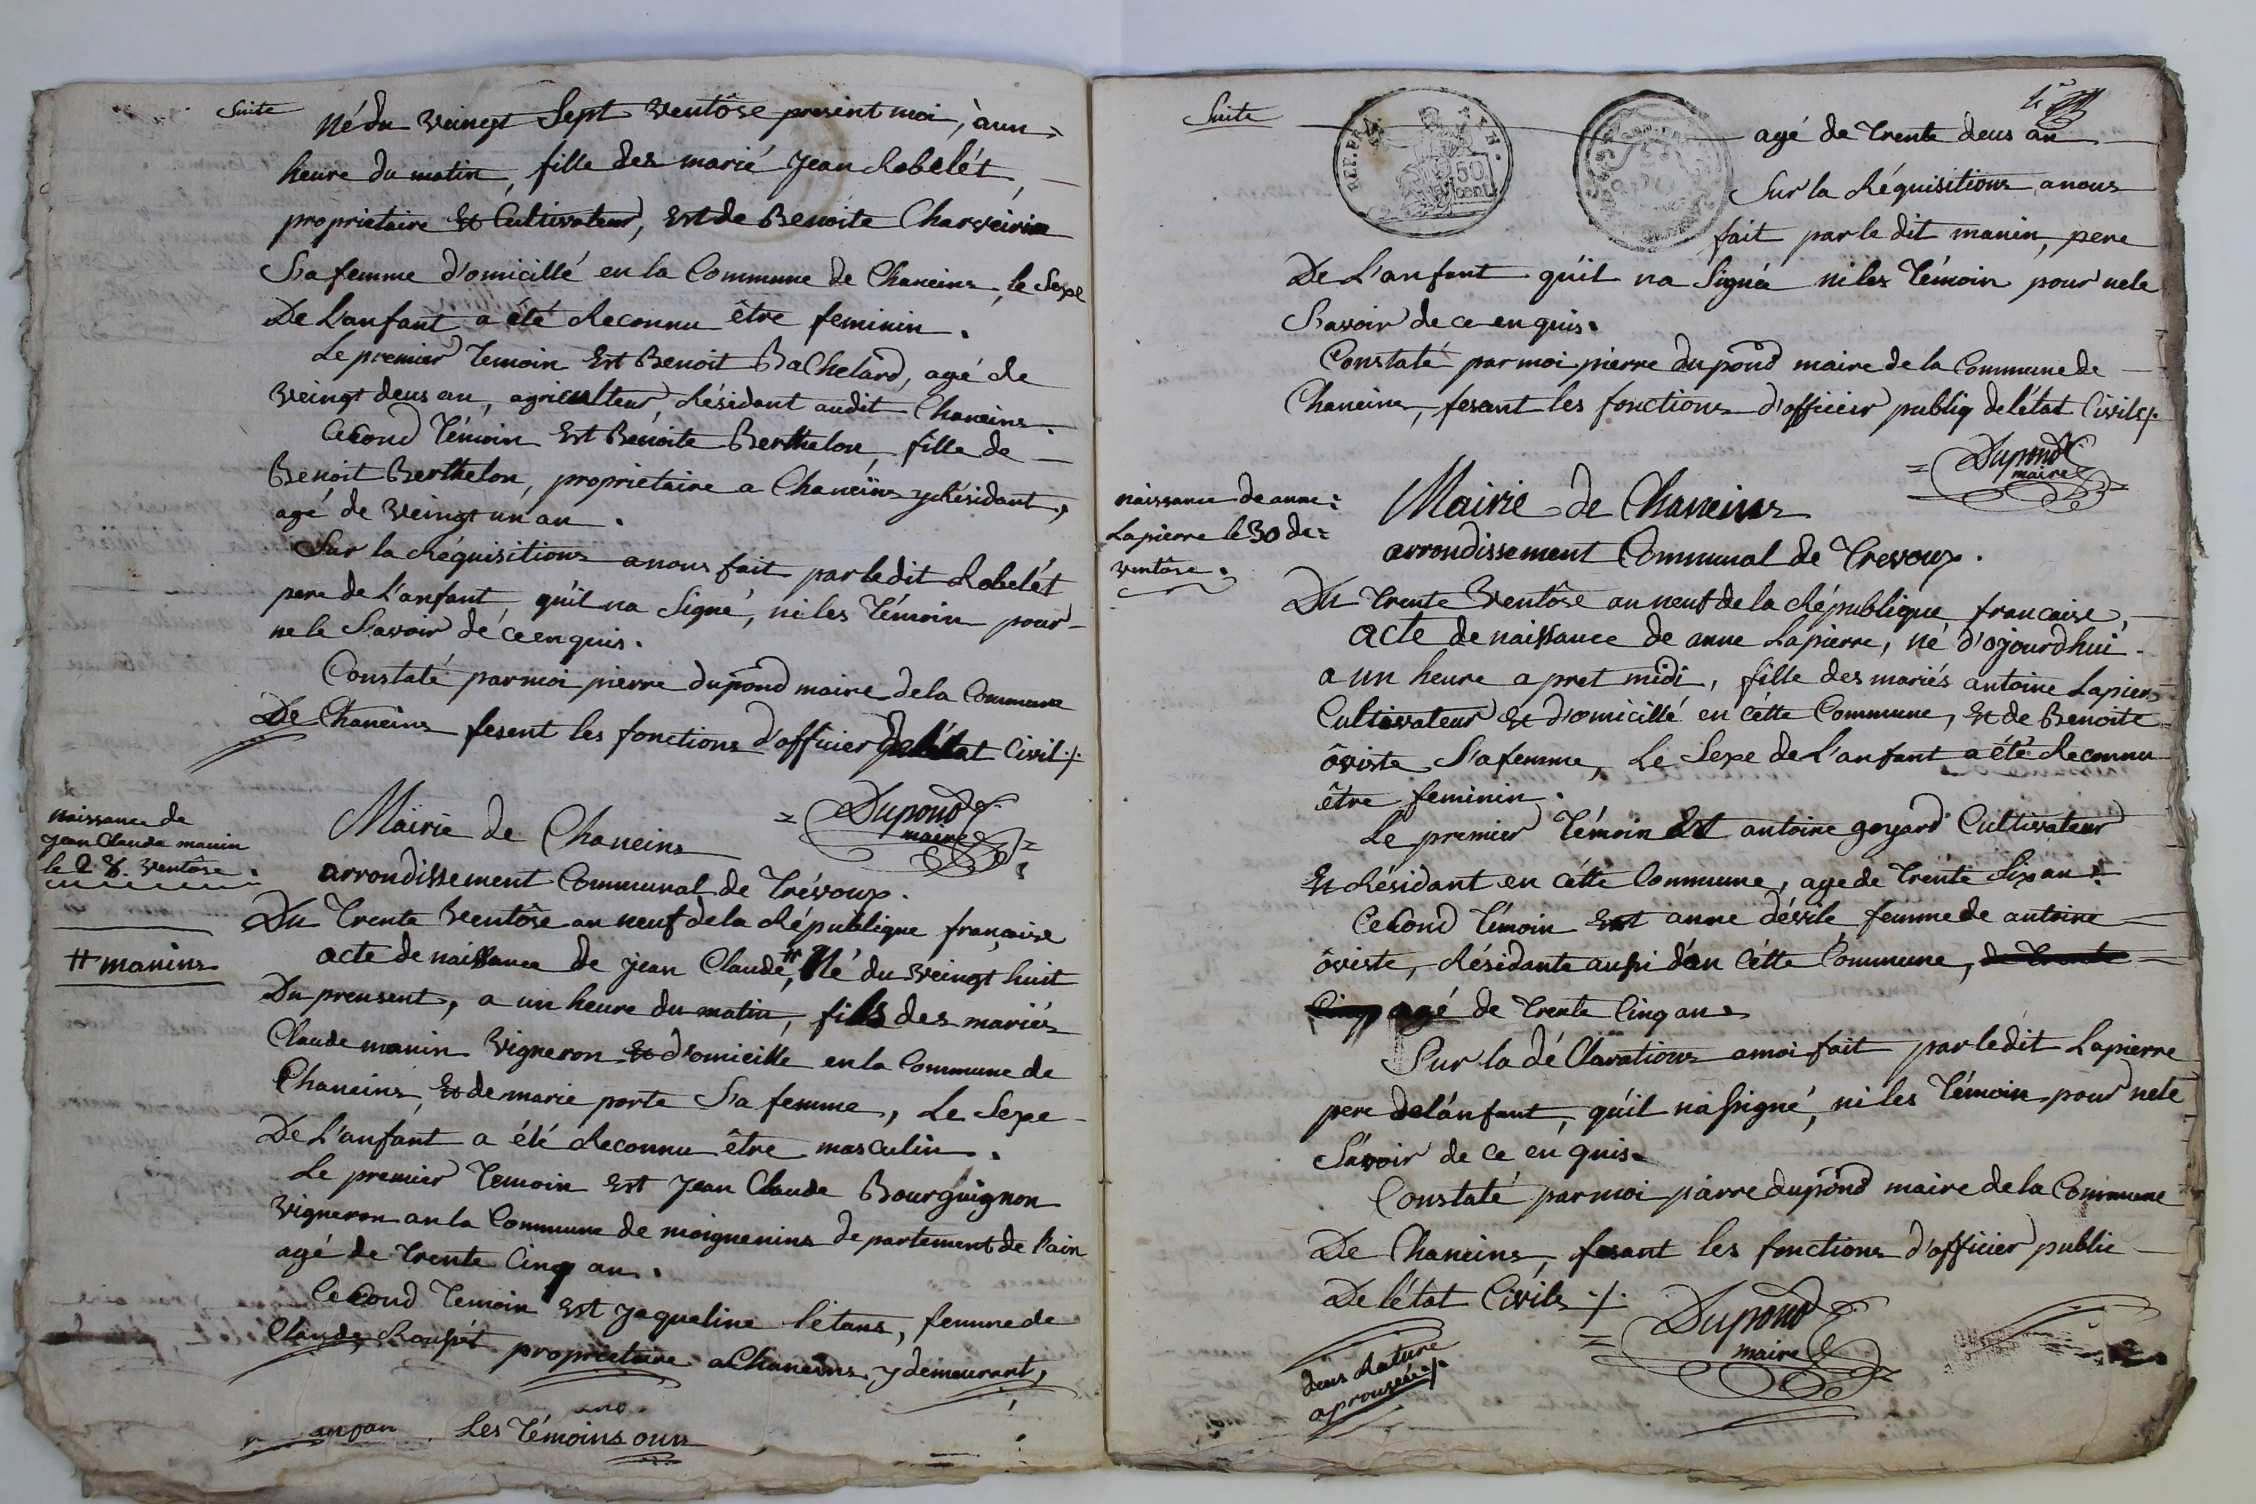 Suite
Né du Veingt Sept Ventôse present moi, à un
heure du matin, fille des marié Jean Robelét
proprietaire Et Cultivateur, Est de Benoite Charveirin
Sa femme d'omicillé en la Commune de Chaneins, le Sexe
De L'anfant a été Reconnu être feminin.
Le premier Temoin Est Benoit Bachelard, agé de
Veingt deus an, agriculteur, Résidant audit Chaneins.
Cecond Témoin Est Benoite Berthelon, fille de
Benoit Berthelon, proprietaire a Chaneins y Résidant,
agé de Veingt un an.
Sur la Réquisitions anous fait par ledit Robelét
pere de L'anfant, qu'il na Signé, ni les Témoin pour
ne le Savoir de ce enquis.
Constaté par moi pierre dupond maire dela Commune
De Chaneins fesent les fonctions d'officier de l'état Civil ./.
Dupond
maire
naissance de
Jean Claude manin
le 28. Ventôse.
Mairie de Chaneins
arrondissement Communal de Trévoux.
Du Trente Ventôse an neuf dela République francaise
# manins
acte de naissance de Jean Claude #, Né du Veingt huit
Du preusent, a un heure du matin, fills des mariés
Claude manin Vigneron Et d'omicille en la Commune de
Chaneins, Et de marie porte Sa femme, Le Sexe
De L'anfant a été Reconnu être masculin.
Le premier Temoin Est Jean Claude Bourguignon
Vigneron an la Commune de moignenins departement de l'ain
agé de Trente Cinq an.
Cecond Temoin Est Jaqueline létans, femme de
Claude Roupét proprietaire a Chaneins y demeurant,
Les Témoins ons
Suite
REP. FRA.
50
cent.
agé de Trente deus an
Sur la Réquisitions anous
fait par le dit manin, pere
De L'anfant qu'il na Signéa ni les Témoin pour nele
Savoir de ce enquis.
Constaté par moi pierre dupond maire de la Commune de
Chaneins, fesant les fonctions d'officier publiq de létat Civils ./.
Dupond
maire
naissance de anne
Lapierre le 30 de
Ventôse.
Mairie de Chaneins
arrondissement Communal de Trevoux.
Du Trente Ventôse an neuf de la République francaise,
acte de naissance de anne Lapierre, né d'ojourdhui
a un heure a pret midi, fille des mariés antoine Lapiere
Cultivateur Et d'omicillé en cétte Commune, Et de Benoite
ôviste S'afemme, Le Sexe de L'anfant a été Reconnu
être feminin.
Le premier Témoin Est antoine goyard Cultivateur
Et Résidant en cétte Commune, age de Trente Six an
Cecond Témoin Est anne dévile femme de antoine
ôviste, Résidante aussi dán Cétte Commune, de Trente
Cinq agé de Trente Cinq ans
Sur la dé Clarations a moi fait par ledit Lapierre
pere delánfant, qu'il na Signé, ni les Témoin pour nele
Sávoir de ce en quis.
Constaté par moi piarre dupond maire de la Commune
De Chaneins, fesant les fonctions d'officier public
De létat Civils ./.
Dupond
maire
deus Rature
aprouseé ./.